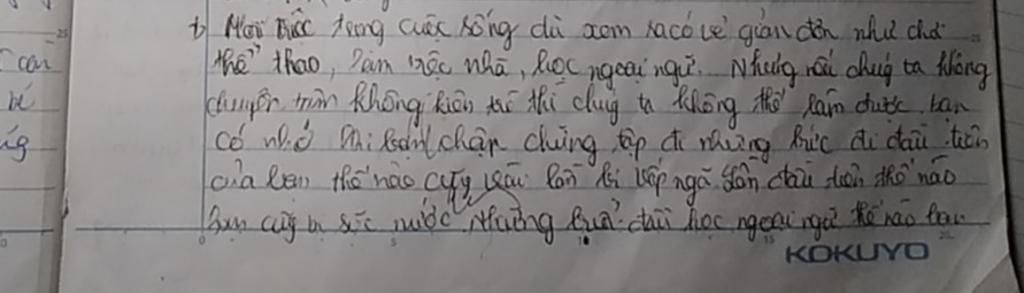 b) Mọi việc trong cuộc sống dù xem ra có vẻ giản đơn như chơi
thể thao, làm việc nhà, học ngoại ngữ. Nhưng nếu chúng ta không
can
chuyên tâm không kiên trì thì chúng ta không thể làm được bạn
bé
có nhớ khi bạn chập chững tập đi những bước đi đầu tiên
của bạn thế nào cũng vài lần bị vấp ngã lần đầu tiên thế nào
bạn cũng bị sặc nước. Những buổi đầu học ngoại ngữ thế nào bạn
KOKUYO